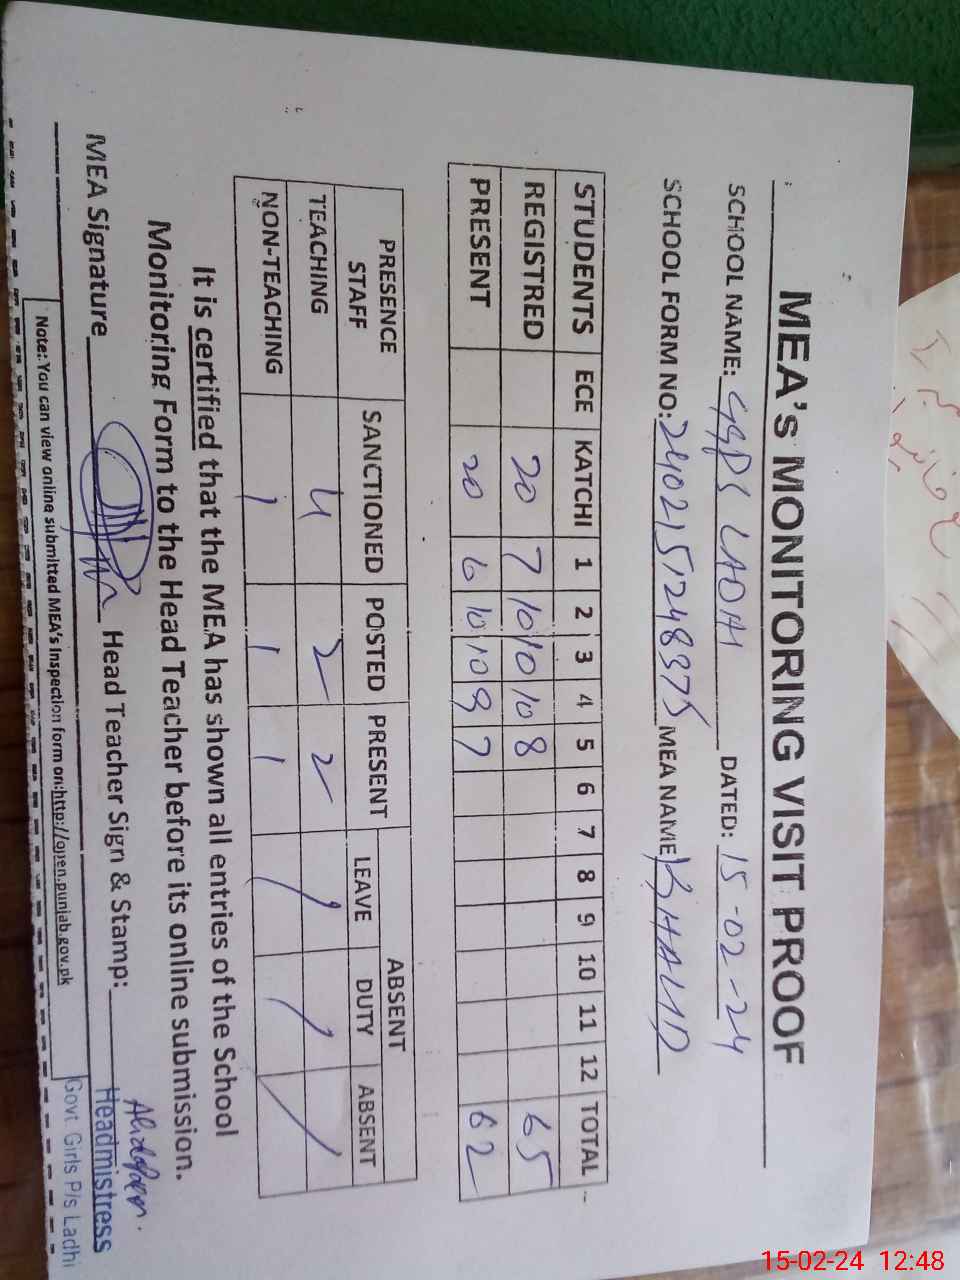 MEA's MONITORING VISIT PROOF
SCHOOL NAME: GGPS LADHI DATED: 15-02-24
SCHOOL FORM NO: 2402151248375 MEA NAME KHALID
STUDENTS ECE KATCHI 1 2 3 4 5 6 7 8 9 10 11 12 TOTAL
REGISTRED 20 7 10 10 10 8 65
PRESENT 20 6 10 10 9 7 62
PRESENCE STAFF SANCTIONED POSTED PRESENT ABSENT
LEAVE DUTY ABSENT
TEACHING 4 2 2 / / /
NON-TEACHING 1 1 1
It is certified that the MEA has shown all entries of the School
Monitoring Form to the Head Teacher before its online submission.
MEA Signature Head Teacher Sign & Stamp:
Headmistress
Govt Girls P/s Ladhi
Note:. You can view online submitted MEA's Inspection form on:http://open.punjab.gov.pk
15-02-24 12:48